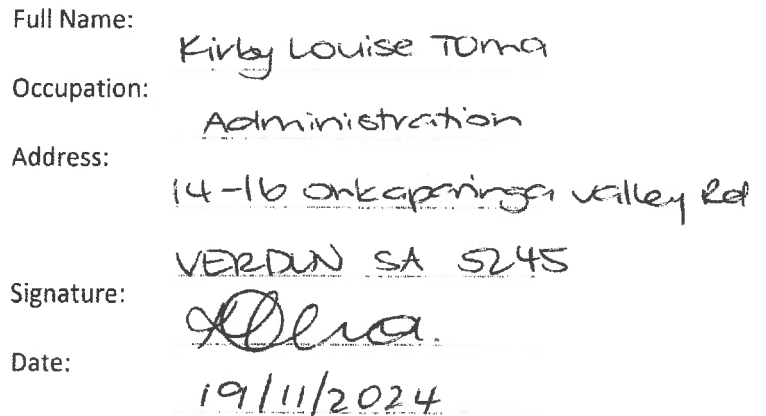 Full Name:
Kirby Louise Toma
Occupation:
Administration
Address:
14-16 Onkaparinga Valley Rd
VERDUN SA 5245
Signature:
Date:
19/11/2024